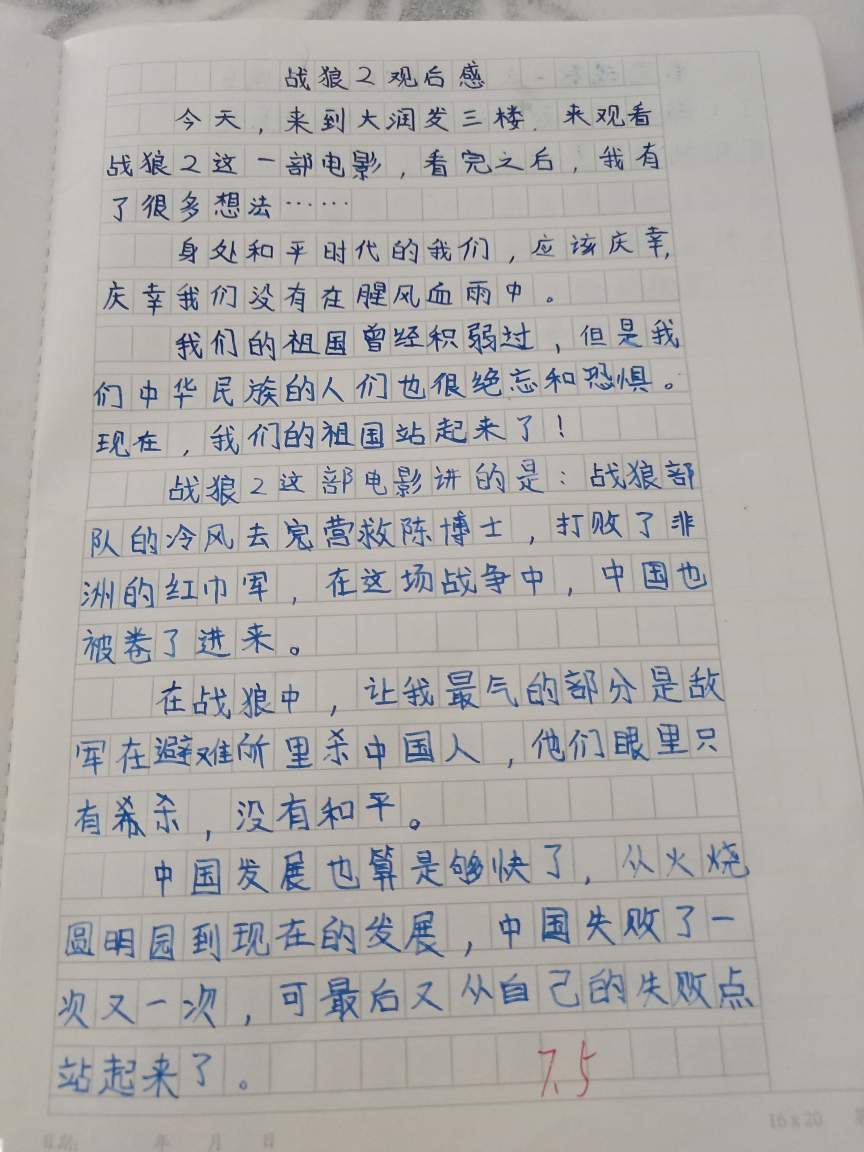 战狼2观后感
今天，来到大润发三楼，来观看
战狼2这一部电影，看完之后，我有
了很多想法……
身处和平时代的我们，应该庆幸，
庆幸我们没有在腥风血雨中。
我们的祖国曾经积弱过，但是我
们中华民族的人们也很绝忘和恐惧。
现在，我们的祖国站起来了！
战狼2这部电影讲的是：战狼部
队的冷风去完营救陈博士，打败了非
洲的红巾军，在这场战争中，中国也
被卷了进来。
在战狼中，让我最气的部分是敌
军在避难所里杀中国人，他们眼里只
有杀，没有和平。
中国发展也算是够快了，从火烧
圆明园到现在的发展，中国失败了一
次又一次，可最后又从自己的失败点
站起来了。
7.5
16x20
日期： 年 月 日